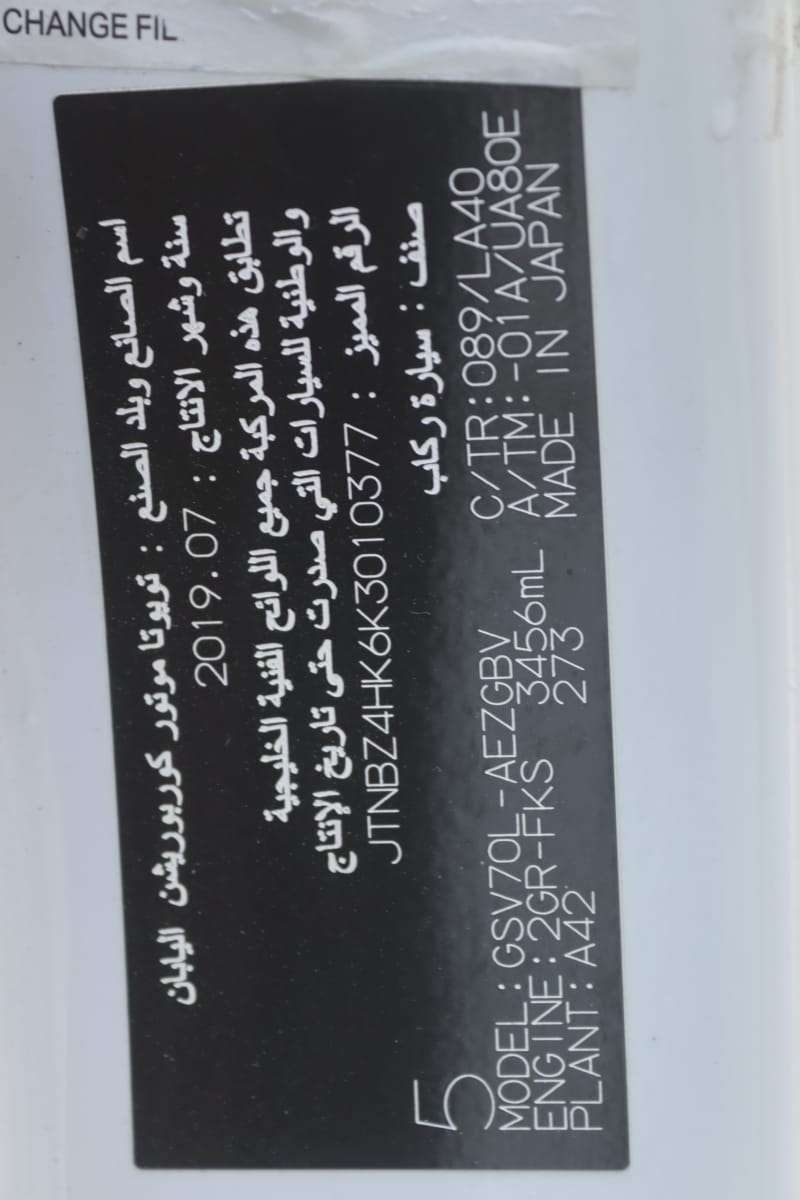 CHANGE FIL
اسم الصانع وبلد الصنع : تويوتا موتور كوربوريشن اليابان
سنة وشهر الانتاج : 2019.07
تطابق هذه المركبة جميع اللوائح الفنية الخليجية
والوطنية للسيارات التي صدرت حتى تاريخ الإنتاج
الرقم المميز : JTNBZ4HK6K3010377
صنف : سيارة ركاب
5
MODEL:GSV70L-AEZGBV C/TR:089/LA40
ENGINE:2GR-FKS 3456mL A/TM:-01A/UA80E
PLANT:A42 273 MADE IN JAPAN